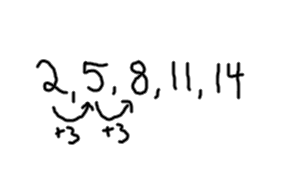 2, 5, 8, 11, 14
+3 +3